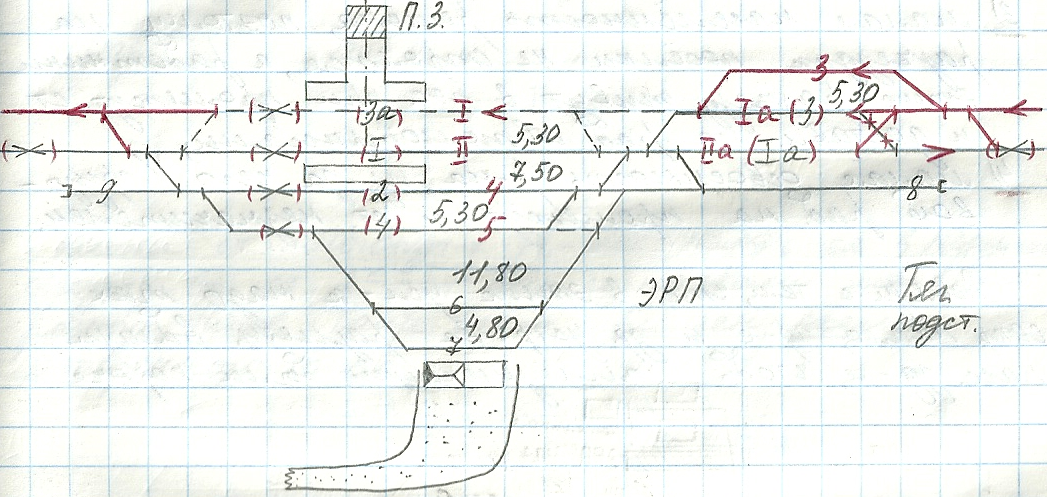 П.З.
3
5,30
(3а) I
Iа (3)
(I) II
5,30
IIа (Iа)
7,50
9
(2) 4
8
(4) 5,30 5
11,80
6
ЭРП
Тяг.
подст.
4,80
7